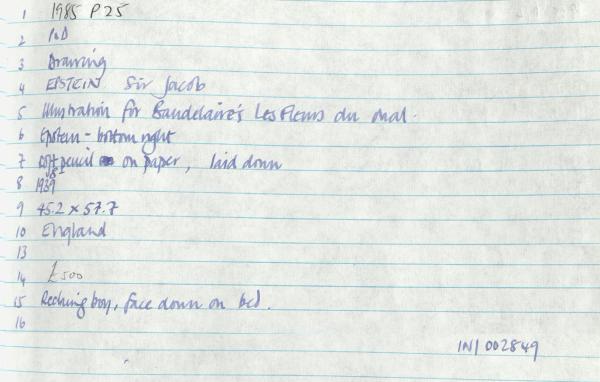 1 1985 P25
2 P&D
3 Drawing
4 EPSTEIN Sir Jacob
5 Illustration for Baudelaire's Les Fleurs du Mal.
6 Epstein - bottom right
7 pencil on paper, laid down
8 1939
9 45.2 x 57.7
10 England
13
14 £500
15 Reclining boy, face down on bed.
16
IN/002849